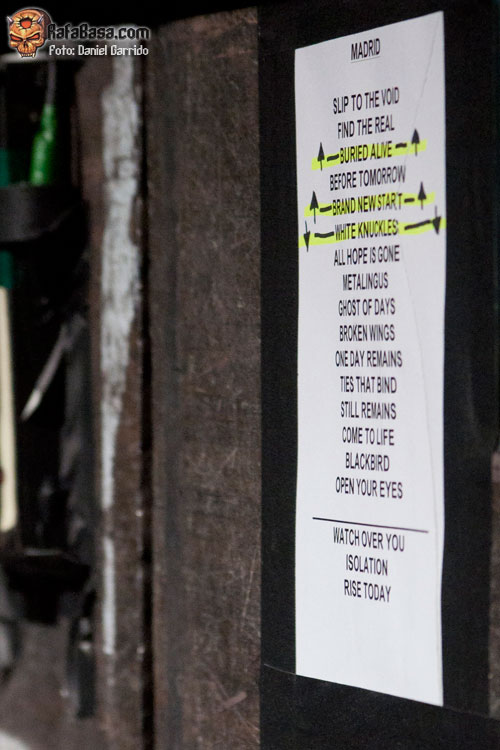 RafaBasa.com
Foto: Daniel Garrido
MADRID
SLIP TO THE VOID
FIND THE REAL
BURIED ALIVE
BEFORE TOMORROW
BRAND NEW START
WHITE KNUCKLES
ALL HOPE IS GONE
METALINGUS
GHOST OF DAYS
BROKEN WINGS
ONE DAY REMAINS
TIES THAT BIND
STILL REMAINS
COME TO LIFE
BLACKBIRD
OPEN YOUR EYES
WATCH OVER YOU
ISOLATION
RISE TODAY